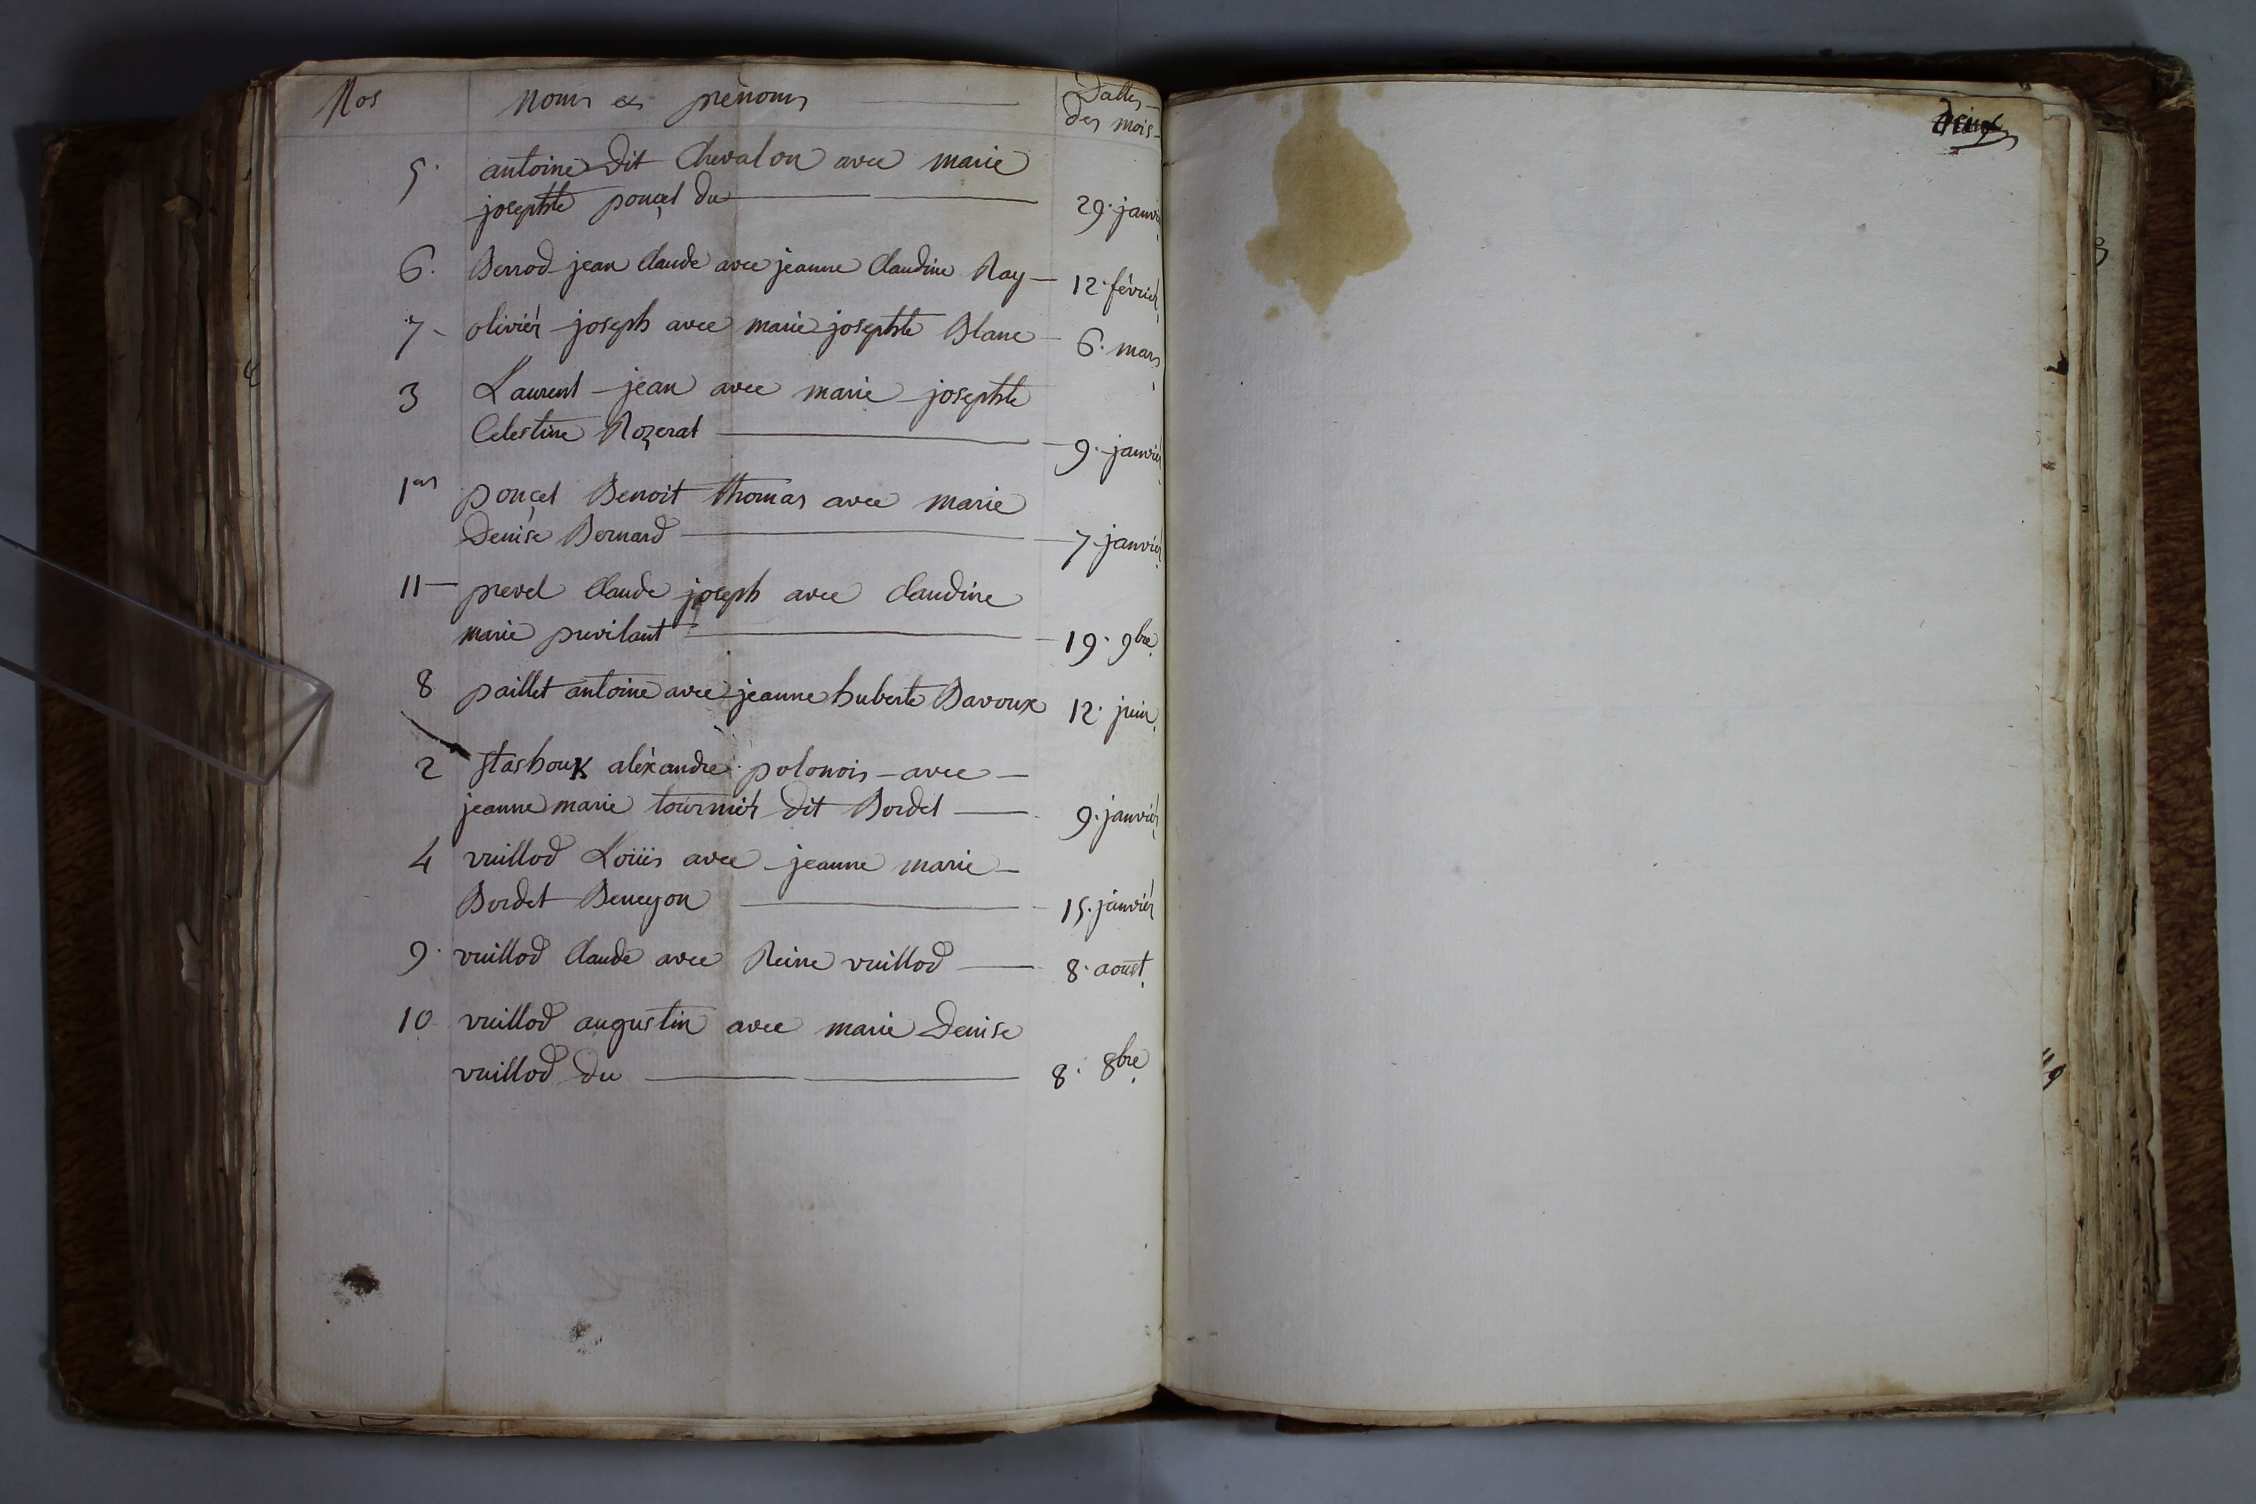 Nos Noms et prénoms Dattes
des mois
5. antoine dit Chevalon avec marie
josephte ponçet du 29. janvi
6. Benod jean Claude avec jeanne Claudine Ray 12. février
7 olivier joseph avec marie josephte Blanc 6. mars
3 Laurent jean avec marie josephte
Celestine Rozerat 9. janvier
1er ponçet Benoit thomas avec marie
Denise Bernard 7. janvier
11 prevel Claude joseph avec Claudine
marie 19. 9bre
8 paillet antoine avec jeanne huberte Bavoux 12. juin
2 Stashouk aléxandre polonois avec
jeanne marie tournier dit Bordet 9. janvier
4 vuillod Loüis avec jeanne marie
Bordet Beneyon 15. janvier
9. vuillod Claude avec Reine vuillod 8. aoust
10 vuillod augustin avec marie Denise
vuillod du 8. 8bre